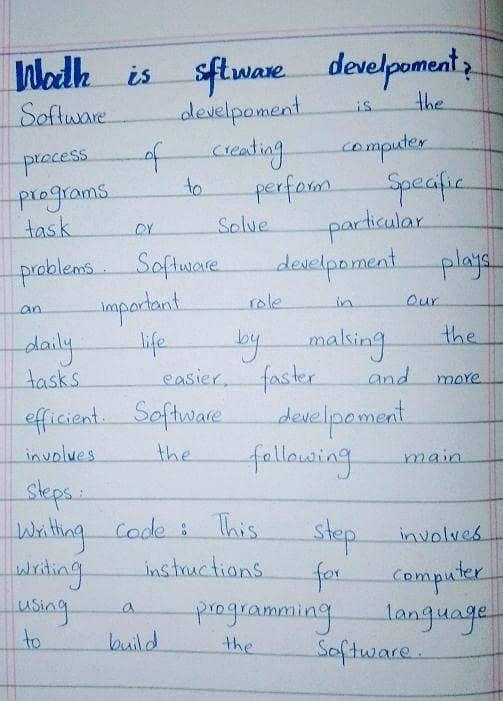 Wodh is sftware develpoment?
Software develpoment is the
process of creating computer
programs to perform Specific
task or Solve particular
problems. Software develpoment plays
an important role in our
daily life by making the
tasks easier, faster and more
efficient. Software develpoment
involves the following main
Steps:
Writting code: This step involves
writing instructions for computer
using a programming language
to build the Software.